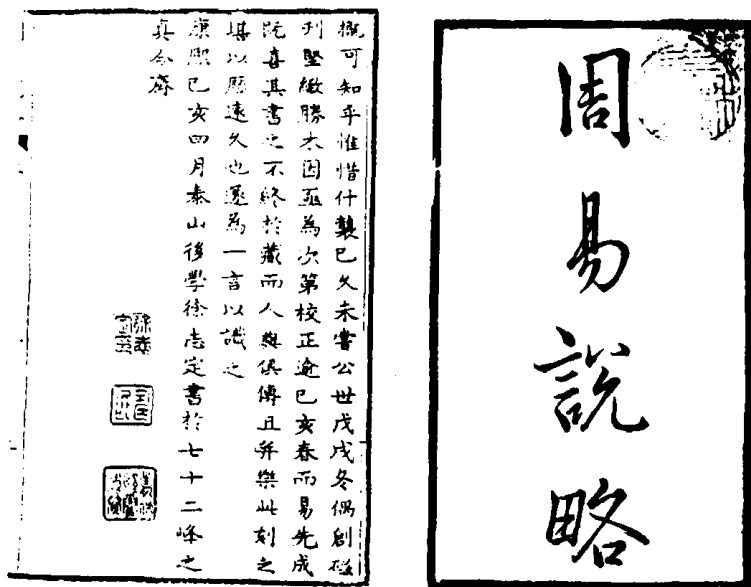 周易說略
概可知乎惟惜什襲已久未嘗公世戊戌冬偶創磁
刊堅緻勝木因亟為次第校正逾己亥春而易先成
既喜其書之不終於藏而人與俱傳且并樂此刻之
堪以歷遠久也遂為一言以識之
康熙己亥四月泰山後學徐志定書於七十二峰之
真合齋